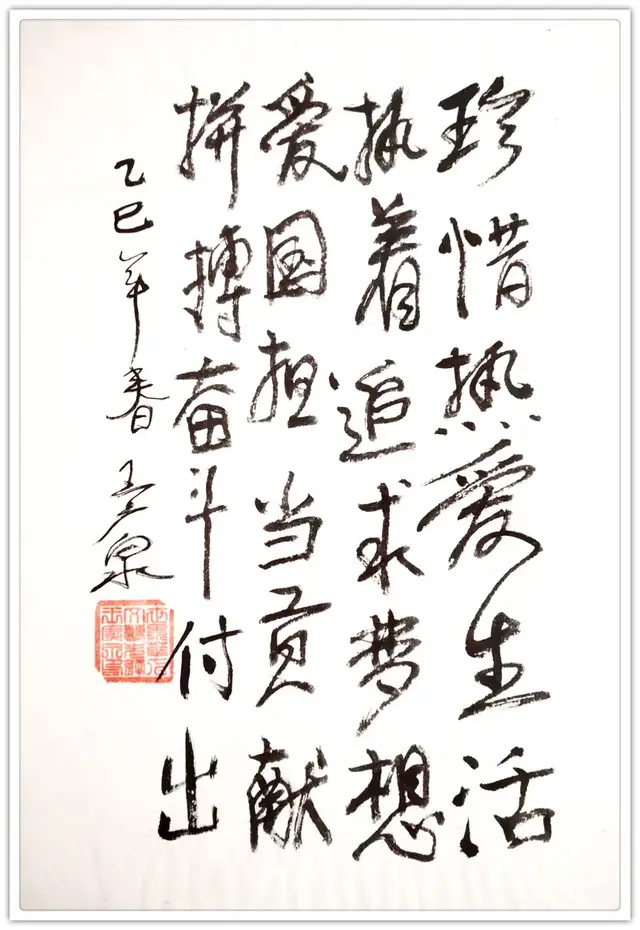 珍惜热爱生活
执着追求梦想
爱国担当贡献
拼搏奋斗付出
乙巳年春